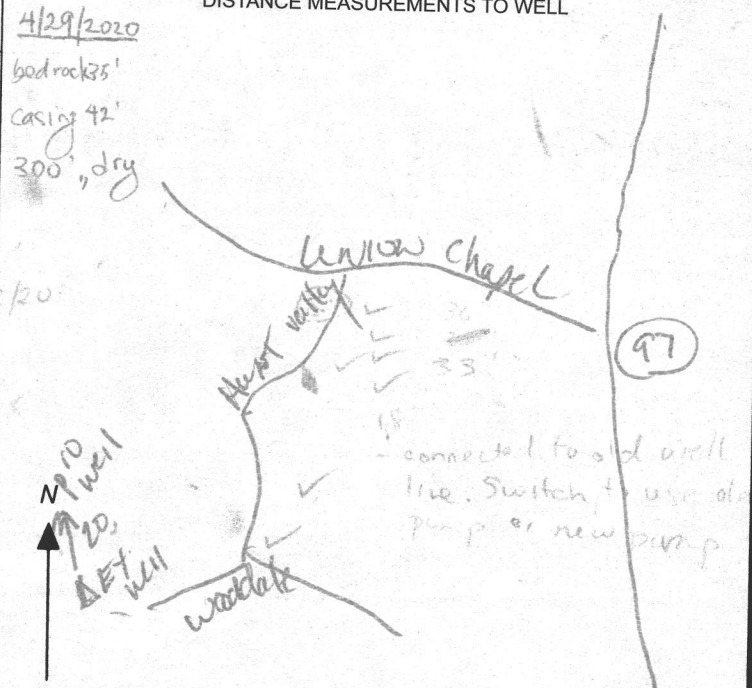 DISTANCE MEASUREMENTS TO WELL
4/29/2020
bedrock 35'
Casing 42'
300', dry
Union Chapel
/20
valley
97
33'
- connected to old well
line. Switch to use old
pump or new pump
N
Pro
well
20'
Ext
well